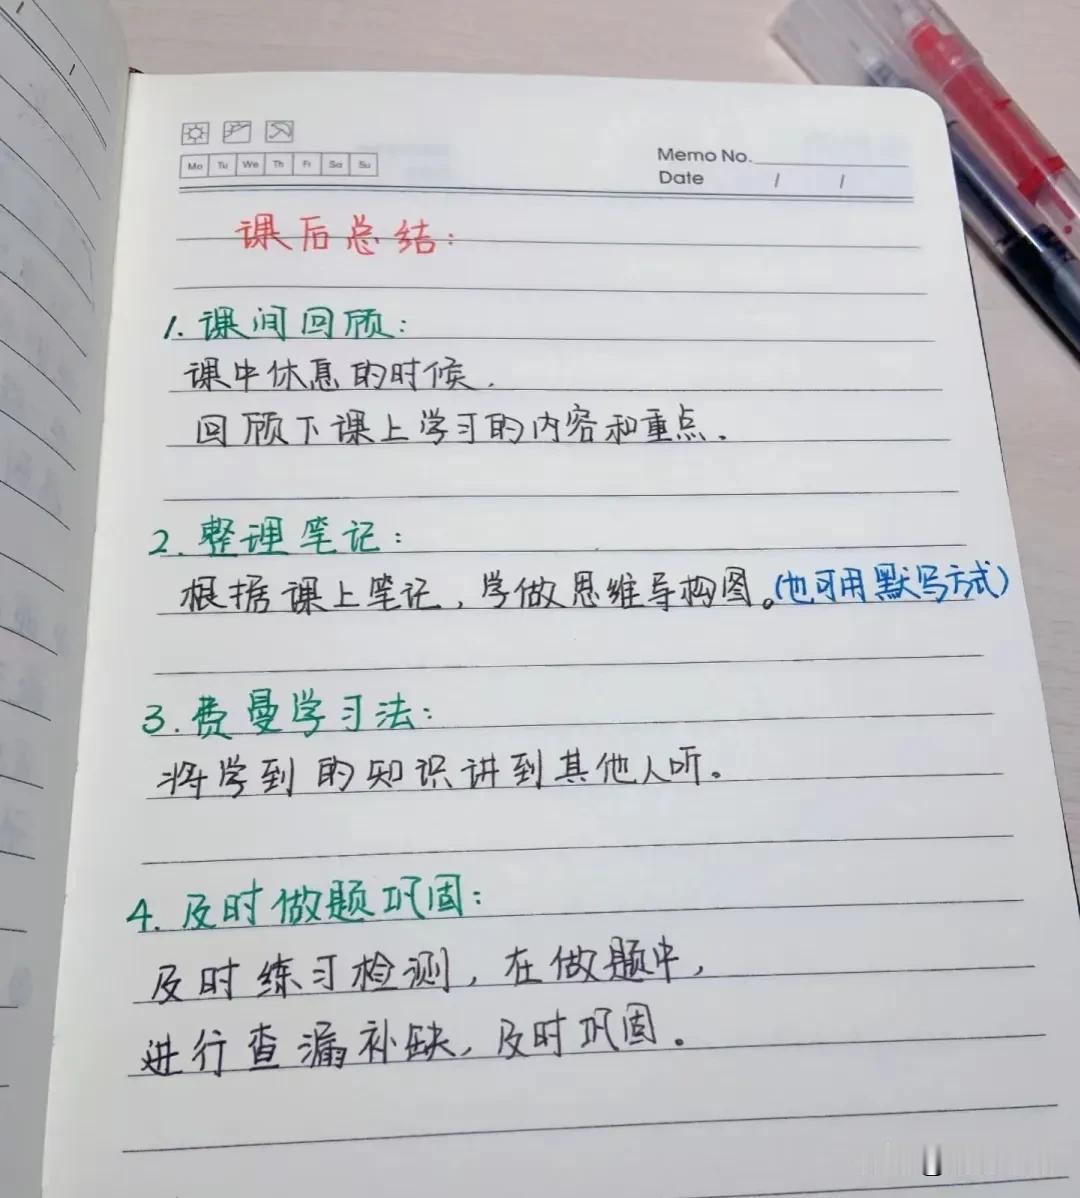 Mo Tu We Th Fr Sa Su
Memo No.
Date / /
课后总结:
1. 课间回顾:
课中休息的时候,
回顾下课上学习的内容和重点.
2. 整理笔记:
根据课上笔记,学做思维导构图。(也可用默写方式)
3. 费曼学习法:
将学到的知识讲到其他人听。
4. 及时做题巩固:
及时练习检测,在做题中,
进行查漏补缺,及时巩固。